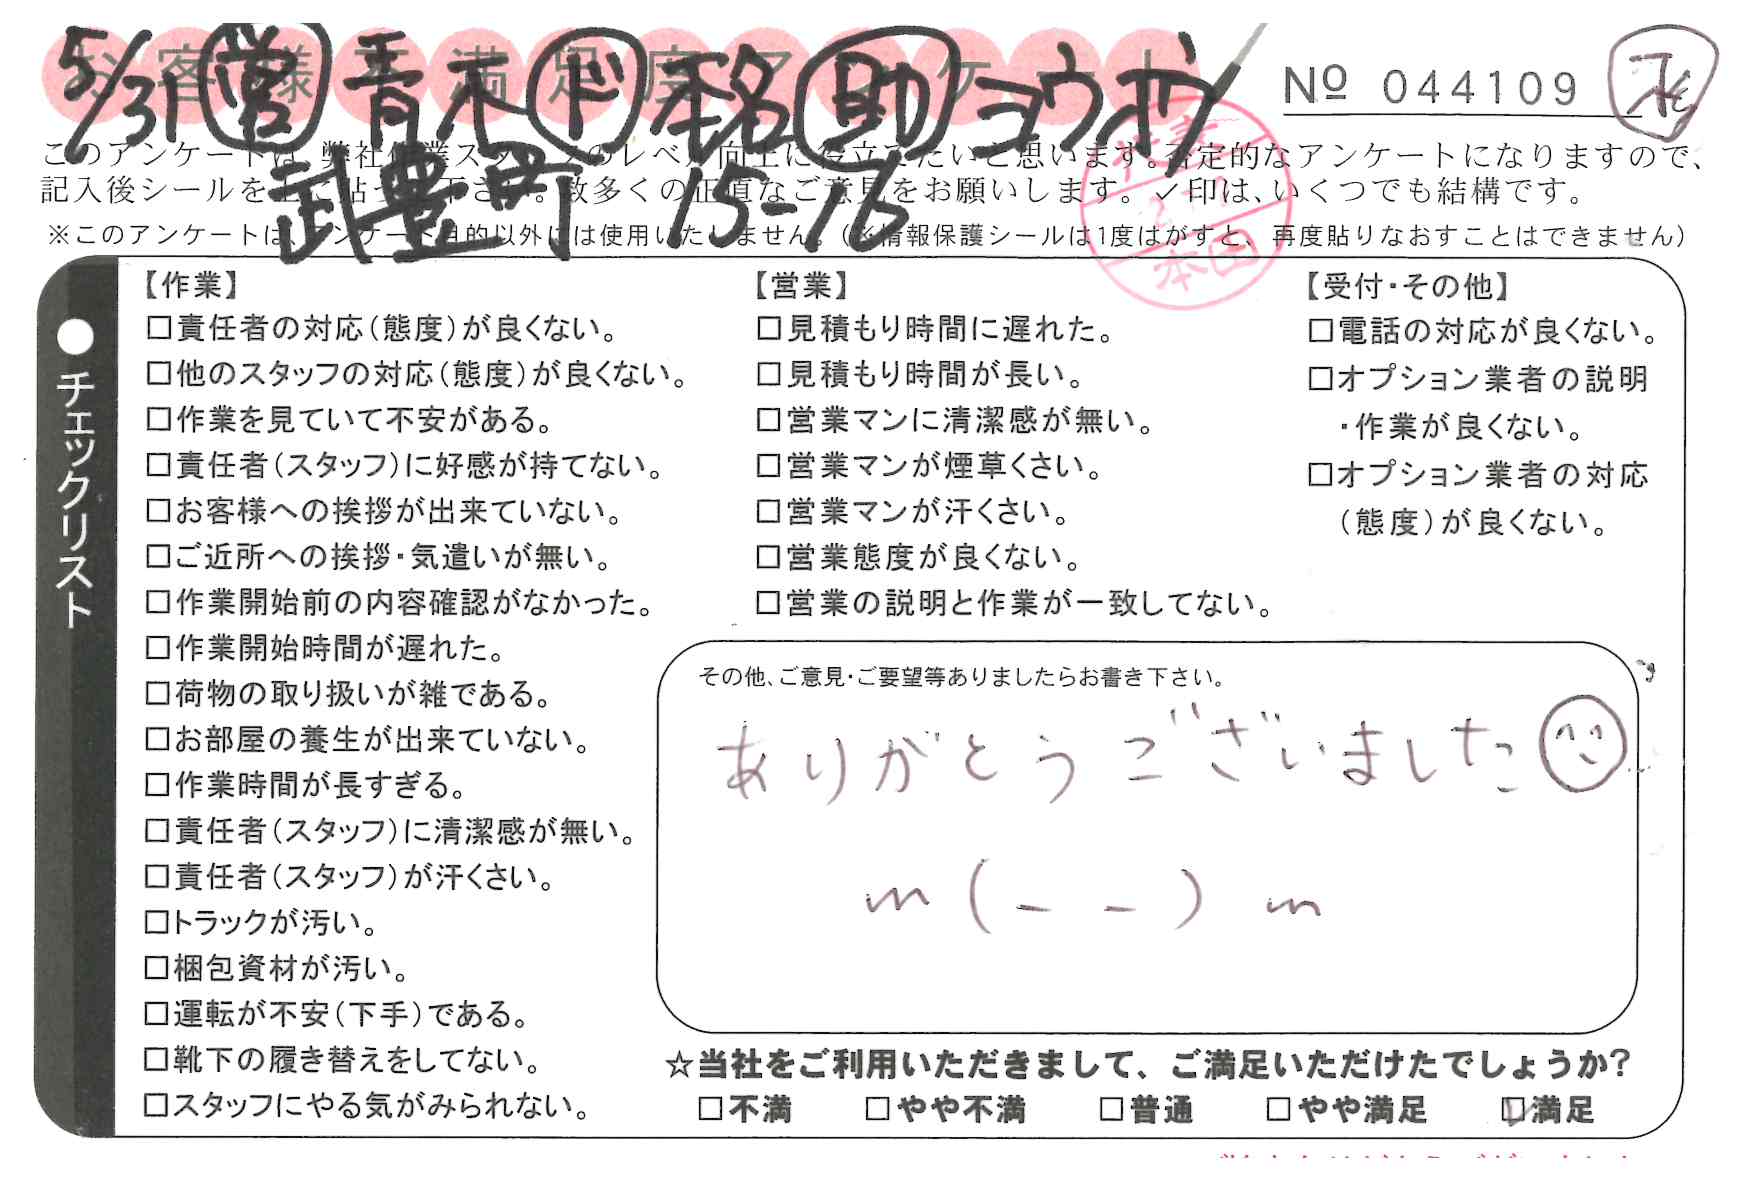 お客様不満足度アンケート
5/31 営 青木 ド 本名 助 ヨウオウ
武豊町 15-76
№ 044109
このアンケートは、弊社作業スタッフのレベル向上に役立てたいと思います。否定的なアンケートになりますので、
記入後シールを上に貼って下さい。数多くの正直なご意見をお願いします。✓印は、いくつでも結構です。
※このアンケートは、アンケート目的以外には使用いたしません。(※情報保護シールは1度はがすと、再度貼りなおすことはできません)
本田
●チェックリスト
【作業】
□責任者の対応(態度)が良くない。
□他のスタッフの対応(態度)が良くない。
□作業を見ていて不安がある。
□責任者(スタッフ)に好感が持てない。
□お客様への挨拶が出来ていない。
□ご近所への挨拶・気遣いが無い。
□作業開始前の内容確認がなかった。
□作業開始時間が遅れた。
□荷物の取り扱いが雑である。
□お部屋の養生が出来ていない。
□作業時間が長すぎる。
□責任者(スタッフ)に清潔感が無い。
□責任者(スタッフ)が汗くさい。
□トラックが汚い。
□梱包資材が汚い。
□運転が不安(下手)である。
□靴下の履き替えをしてない。
□スタッフにやる気がみられない。
【営業】
□見積もり時間に遅れた。
□見積もり時間が長い。
□営業マンに清潔感が無い。
□営業マンが煙草くさい。
□営業マンが汗くさい。
□営業態度が良くない。
□営業の説明と作業が一致してない。
【受付・その他】
□電話の対応が良くない。
□オプション業者の説明
・作業が良くない。
□オプション業者の対応
(態度)が良くない。
その他、ご意見・ご要望等ありましたらお書き下さい。
ありがとうございました
m(_ _)m
☆当社をご利用いただきまして、ご満足いただけたでしょうか?
□不満 □やや不満 □普通 □やや満足 ☑満足